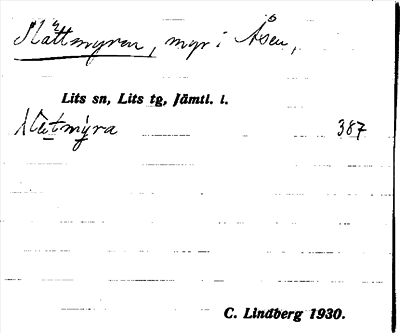 Slåttmyren, myr i Åsen,
Lits sn, Lits tg, Jämtl. l.
387
C. Lindberg 1930.